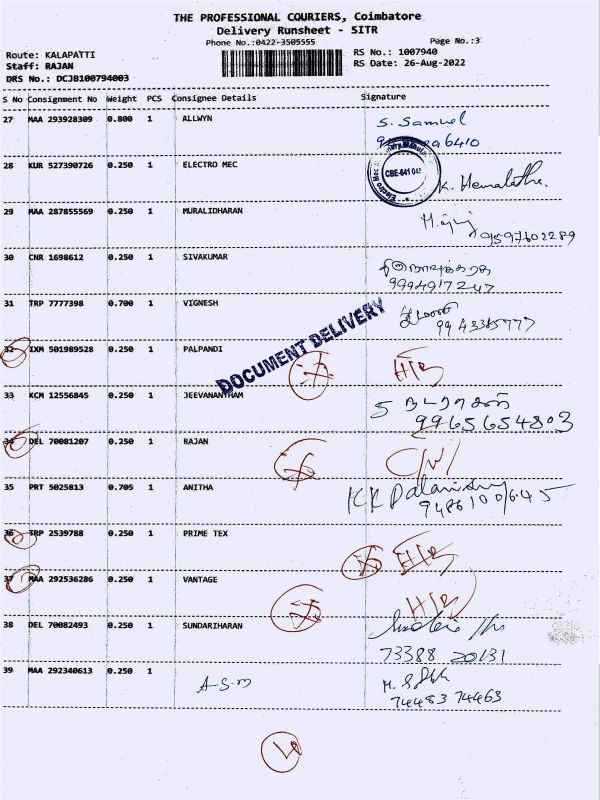 THE PROFESSIONAL COURIERS, Coimbatore
Delivery Runsheet - SITR
Phone No.:0422-3505555 Page No.:3
Route: KALAPATTI RS No.: 1007940
Staff: RAJAN RS Date: 26-Aug-2022
DRS No.: DCJB100794003
S No Consignment No Weight PCS Consignee Details Signature
27 MAA 293928309 0.800 1 ALLWYN S. Samuel
6410
28 KUR 527390726 0.250 1 ELECTRO MEC CBE-641 048 K. Hemalatha.
29 MAA 287855569 0.250 1 MURALIDHARAN
9597602289
30 CNR 1698612 0.250 1 SIVAKUMAR
9994917247
31 TRP 7777398 0.700 1 VIGNESH
DOCUMENT DELIVERY
32 IXM 501989528 0.250 1 PALPANDI
33 KCM 12556845 0.250 1 JEEVANANTHAM
9965654803
34 DEL 70081207 0.250 1 RAJAN
35 PRT 5025813 0.705 1 ANITHA
36 TRP 2539788 0.250 1 PRIME TEX
37 MAA 292536286 0.250 1 VANTAGE
38 DEL 70082493 0.250 1 SUNDARIHARAN
73388 20131
39 MAA 292340613 0.250 1 A-S-M
74483 74463